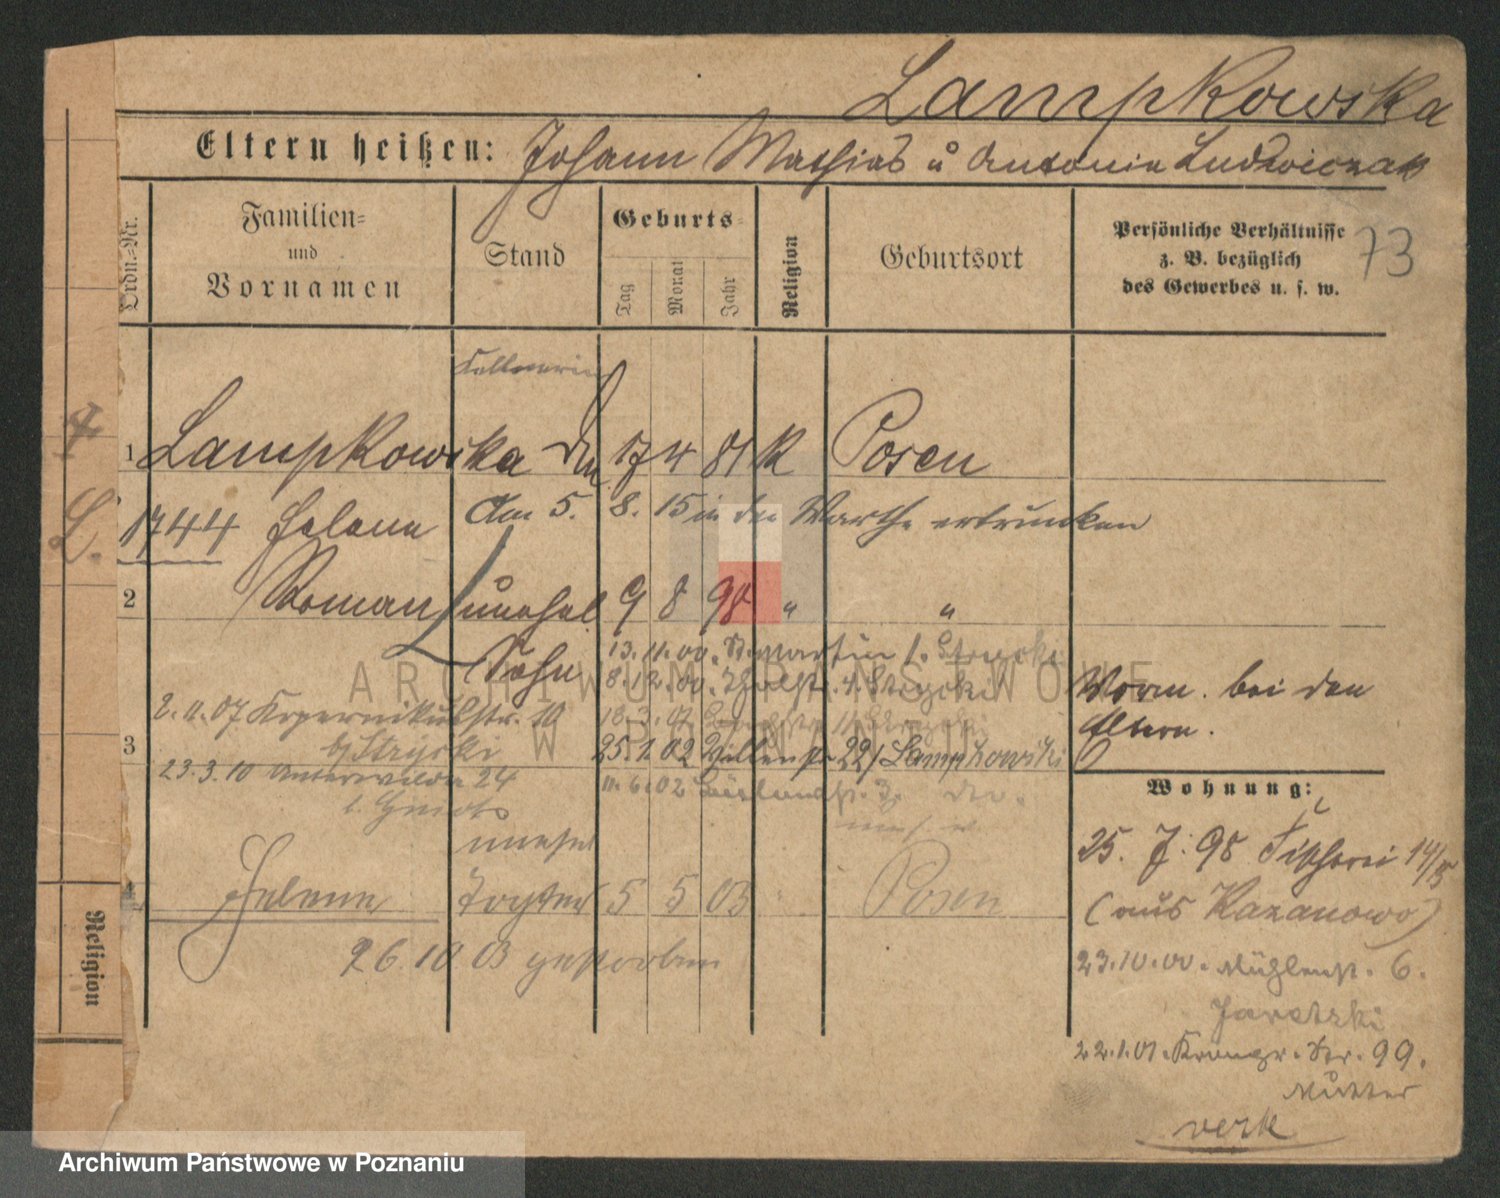 Lampkowska
Eltern heißen: Johann Mathias u Antonie Ludwiczak
Ordn.-Nr.
Familien-
und
Vornamen
Stand
Geburts-
Tag
Monat
Jahr
Religion
Geburtsort
Persönliche Verhältnisse
z. B. bezüglich
des Gewerbes u. s. w.
73
Kellnerin
1 Lampkowska 17 4 81 K Posen
L.
1744 Helene Am 5. 8. 15 in der Warthe ertrunken
2 Roman unehel 9 8 98 " "
Sohn
13.11.00. St. Martin 1. Stryski
8.12.00.
Vorm. bei den
Eltern.
2.11.07 Kopernikusstr. 10
b/Stryski
3
25.1.02 22/ Lampkowski
23.3.10 Unterwilda 24
11.6.02
Wohnung:
25. 7. 98 Fischerei 14/15
(aus Kazanowo)
unehel
4 Helene Tochter 5 5 03 Posen
26.10.03 gestorben
23.10.00. Mühlenst. 6.
Jaretzki
22.1.01. Kronpr. Str. 99.
Mutter
verte
Religion
ARCHIWUM PAŃSTWOWE
W POZNANIU
Archiwum Państwowe w Poznaniu